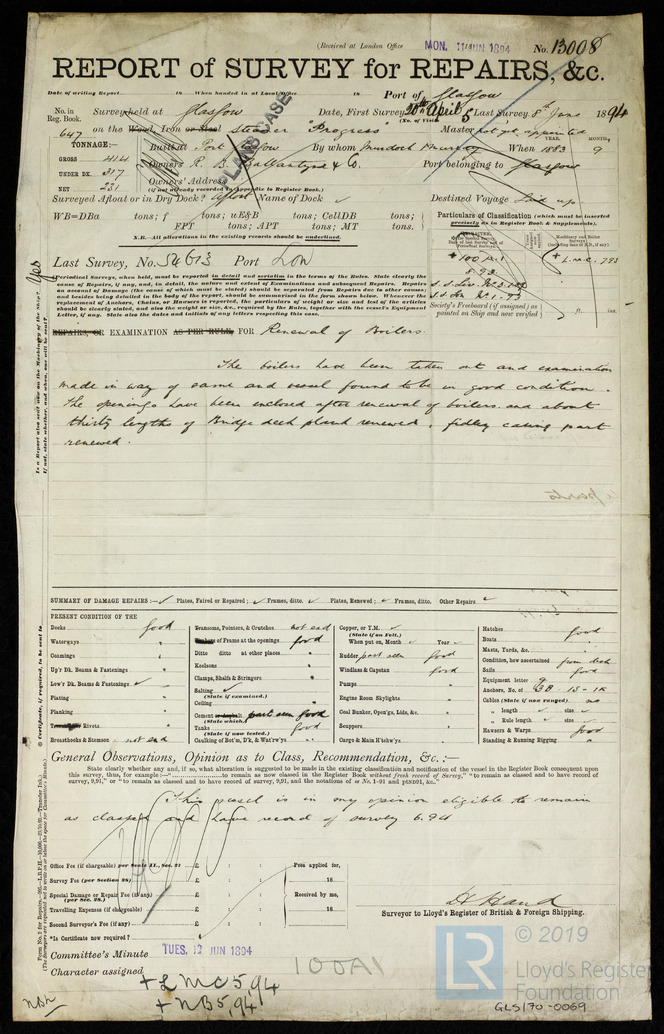 (Received at London Office MON. 11 JUN 1894 No. 13008
REPORT of SURVEY for REPAIRS, &c.
Date of writing Report 18 When handed in at Local Office 18 Port of Glasgow
No. in Reg. Book. Survey held at Glasgow Date, First Survey 20th April Last Survey 8th June 1894
(No. of Visits 5
647 on the Wood, Iron or Steel steamer "Progress" Master not yet appointed
TONNAGE:— Built at Port Glasgow By whom Murdoch & Murray When 1883 9
YEAR. MONTH.
GROSS 414 Owners R. B. Ballantyne & Co. Port belonging to Glasgow
PLANS CASE
UNDER DK. 317 Owners' Address
NET 231 (if not already recorded in Appendix to Register Book.)
Surveyed Afloat or in Dry Dock? Afloat Name of Dock Destined Voyage Laid up
WB=DBa tons; f tons; uE&B tons; CellDB tons;
FPT tons; APT tons; MT tons.
N.B.—All alterations in the existing records should be underlined.
Particulars of Classification (which must be inserted precisely as in Register Book & Supplements).
Last Survey, No. 54613 Port Lon
+100 A.1 + L.M.C. 7.93
8.93
Periodical Surveys, when held, must be reported in detail and seriatim in the terms of the Rules. State clearly the
cause of Repairs, if any, and, in detail, the nature and extent of Examinations and subsequent Repairs. Repairs
on account of Damage (the cause of which must be stated) should be separated from Repairs due to other causes;
and besides being detailed in the body of the report, should be summarised in the form shown below. Whenever the
replacement of Anchors, Chains, or Hawsers is reported, the particulars of weight or size and test of the articles
should be clearly stated, and also the weight or size, &c., required by the Rules, together with the vessel's Equipment
Letter, if any. State also the dates and initials of any letters respecting this case.
Society's Freeboard (if assigned) as painted on Ship and now verified ft. ins.
REPAIRS, OR EXAMINATION AS PER RULE, FOR Renewal of Boilers.
The boilers have been taken out and examination
made in way of same and vessel found to be in good condition.
The openings have been enclosed after renewal of boilers and about
thirty lengths of Bridge deck plank renewed, fidley casing part
renewed.
SUMMARY OF DAMAGE REPAIRS :— Plates, Faired or Repaired; Frames, ditto. Plates, Renewed; Frames, ditto. Other Repairs
PRESENT CONDITION OF THE
Decks good
Waterways "
Coamings "
Up'r Dk. Beams & Fastenings "
Low'r Dk. Beams & Fastenings
Plating "
Planking
Rivets "
Breasthooks & Stemson not seen
Transoms, Pointers, & Crutches not seen
of Frame at the openings good
Ditto ditto at other places "
Keelsons "
Clamps, Shelfs & Stringers "
Salting
(State if examined.)
Ceiling "
Cement or Asphalt part seen good
(State which.)
Tanks
(State if now tested.)
Caulking of Bot'm, D'k, & Wat'rw'ys "
Copper, or Y.M.
(State if on Felt.)
When put on, Month Year
Rudder part seen good
Windlass & Capstan good
Pumps "
Engine Room Skylights "
Coal Bunker, Open'gs, Lids, &c. "
Scuppers "
Cargo & Main H'tchw'ys "
Hatches good
Boats "
Masts, Yards, &c. "
Condition, how ascertained from deck
Sails good
Equipment letter
Anchors, No. of 3B - 1S - 1K
Cables (State if now ranged) no
" length size
" Rule length size
Hawsers & Warps good
Standing & Running Rigging "
General Observations, Opinion as to Class, Recommendation, &c. :—
State clearly whether any and, if so, what alteration is suggested to be made in the existing classification and notification of the vessel in the Register Book consequent upon
this survey, thus, for example :—" to remain as now classed in the Register Book without fresh record of Survey," "to remain as classed and to have record of
survey, 9,91," or "to remain as classed and to have record of survey, 9,91, and the notations of ss No. 1-91 and ptND91, &c."
This vessel is in my opinion eligible to remain
as classed and have record of survey 6.94
Office Fee (if chargeable) per Scale II., Sec. 27 £ : :
Fees applied for,
Survey Fee (per Section 28) £ : :
18
Special Damage or Repair Fee (if any) £ : :
(per Sec. 28.)
Received by me,
Travelling Expenses (if chargeable) £ : :
18
Second Surveyor's Fee (if any) £ : :
H Hand
Surveyor to Lloyd's Register of British & Foreign Shipping.
*Is Certificate now required?
Committee's Minute TUES. 12 JUN 1894
Character assigned 100A1
+ LMC 5,94
+ NB 5,94
LR
© 2019
Lloyd's Register
Foundation
GLS/70-0069